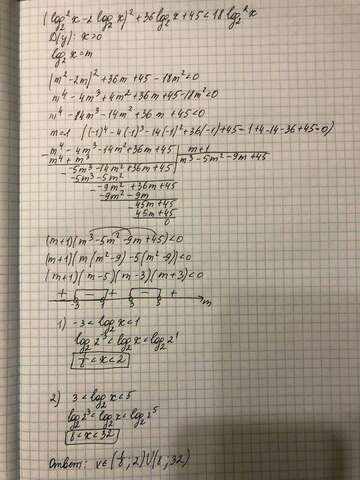 (log₂²x - 2 log₂x)² + 36 log₂x + 45 < 18 log₂²x
D(y): x>0
log₂x = m
(m²-2m)² + 36m + 45 - 18m² < 0
m⁴ - 4m³ + 4m² + 36m + 45 - 18m² < 0
m⁴ - 4m³ - 14m² + 36m + 45 < 0
m = -1 ((-1)⁴ - 4(-1)³ - 14(-1)² + 36(-1) + 45 = 1+4-14-36+45=0)
m⁴ - 4m³ - 14m² + 36m + 45 | m+1
m⁴ + m³ | m³ - 5m² - 9m + 45
-5m³ - 14m² + 36m + 45
-5m³ - 5m²
-9m² + 36m + 45
-9m² - 9m
45m + 45
45m + 45
0
(m+1)(m³ - 5m² - 9m + 45) < 0
(m+1)(m(m²-9) - 5(m²-9)) < 0
(m+1)(m-5)(m-3)(m+3) < 0
+ - + - +
-3 3 5 m
1) -3 < log₂x < 1
log₂2⁻³ < log₂x < log₂2¹
< x < 2
2) 3 < log₂x < 5
log₂2³ < log₂x < log₂2⁵
8 < x < 32
Ответ: ; 2) U (8; 32)